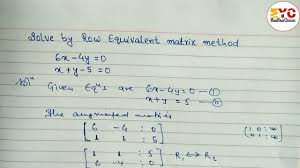 SYC
Solve by Row Equivalent matrix method
6x-4y=0
x+y-5=0
Given Eqⁿs are 6x-4y=0 —(I)
x+y=5 —(II)
The augmented matrix
[6 -4 : 0]
[1 1 : 5]
[1 1 : 5] R₁↔R₂